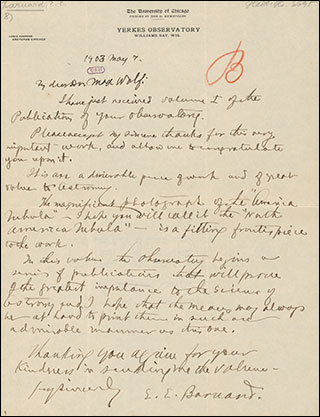 Barnard, E. E.
8)
The University of Chicago
YERKES OBSERVATORY
WILLIAMS BAY, WIS.
B
1903 May 7.
My dear Dr. Max Wolf:
I have just received volume I of the
Publication of your Observatory.
Please accept my sincere thanks for this very
important work, and allow me to congratulate
you upon it.
It is an admirable piece of work and of great
value to astronomy.
The magnificent photograph of the "America
Nebula" – I hope you will call it the "North
America Nebula" – is a fitting frontispiece
to the work.
In this volume the Observatory begins a
series of publications that will prove
of the greatest importance to the science of
astronomy and I hope that the means may always
be at hand to print them in such an
admirable manner as this one.
Thanking you again for your
kindness in sending me the volume –
Sincerely
E. E. Barnard.